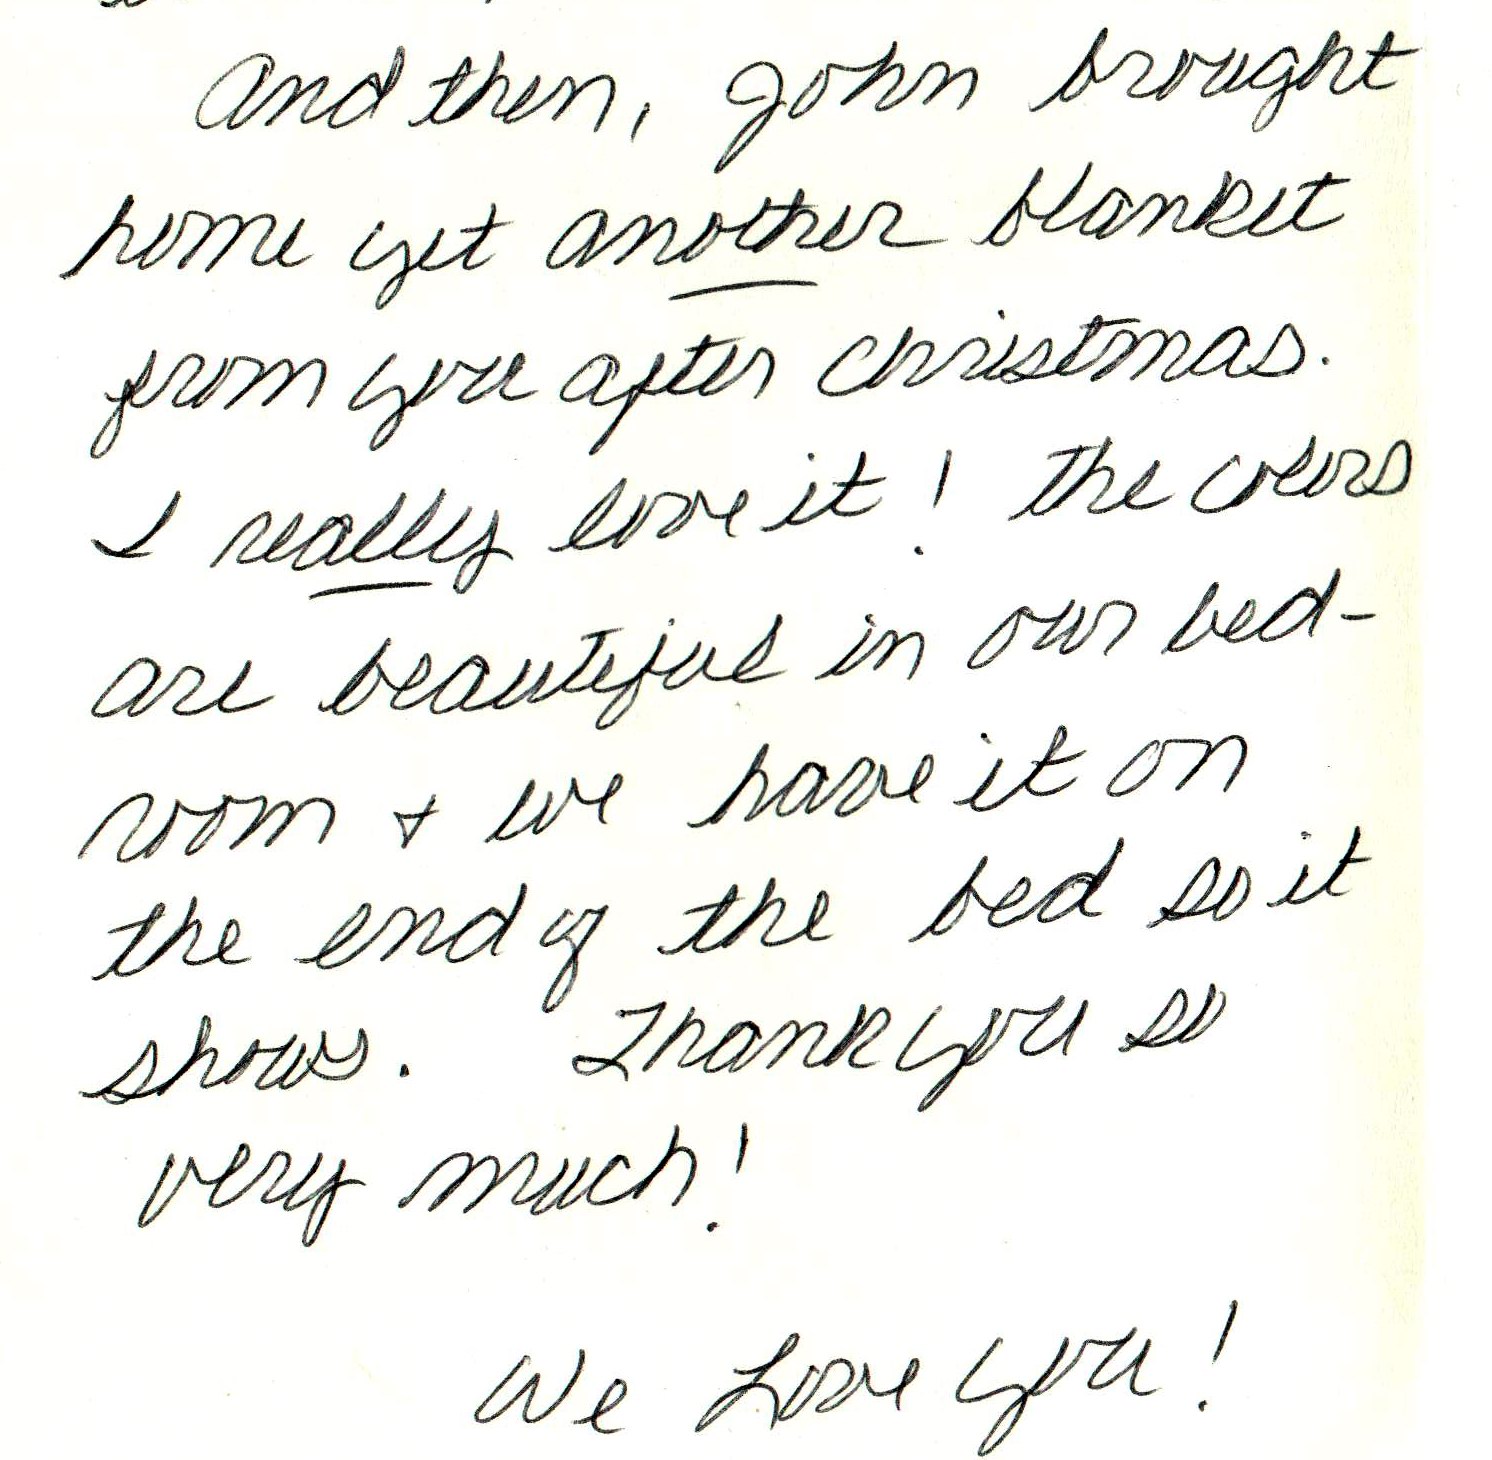 And then, John brought
home yet another blanket
from you after Christmas.
I really love it! The colors
are beautiful in our bed-
room + we have it on
the end of the bed so it
shows. Thank you so
very much!
We Love you!